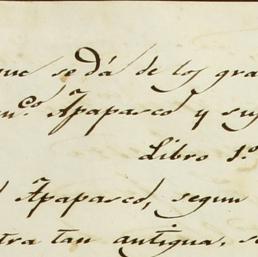 que se dá de los gra
co Apapasco y su
Libro 1.º
Apapasco, segun
tra tan antigua. s